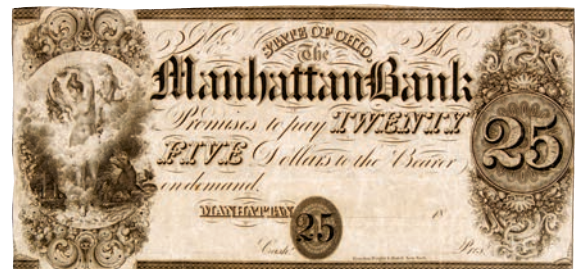 STATE OF OHIO.
No. A
The
Manhattan Bank
Promises to pay TWENTY
FIVE Dollars to the Bearer
on demand.
25
MANHATTAN 18
25
Cash.r Pres.t